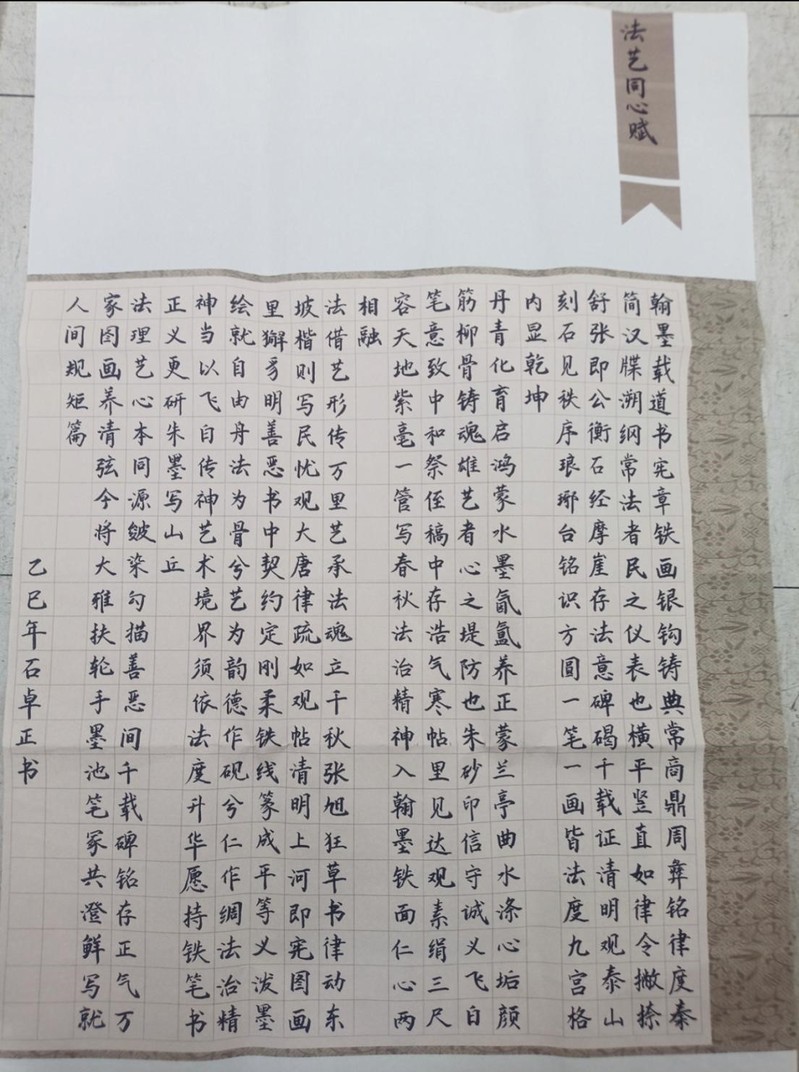 法艺同心赋
翰墨载道书宪章铁画银钩铸典常商鼎周彝铭律度秦
简汉牒溯纲常法者民之仪表也横平竖直如律令撇捺
舒张即公衡石经摩崖存法意碑碣千载证清明观泰山
刻石见秩序琅琊台铭识方圆一笔一画皆法度九宫格
内显乾坤
丹青化育启鸿蒙水墨氤氲养正蒙兰亭曲水涤心垢颜
筋柳骨铸魂雄艺者心之堤防也朱砂印信守诚义飞白
笔意致中和祭侄稿中存浩气寒帖里见达观素绢三尺
容天地紫毫一管写春秋法治精神入翰墨铁面仁心两
相融
法借艺形传万里艺承法魂立千秋张旭狂草书律动东
坡楷则写民忧观大唐律疏如观帖清明上河即宪图画
里獬豸明善恶书中契约定刚柔铁线篆成平等义泼墨
绘就自由舟法为骨兮艺为韵德作砚兮仁作绸法治精
神当以飞白传神艺术境界须依法度升华愿持铁笔书
正义更研朱墨写山丘
法理艺心本同源皴染勾描善恶间千载碑铭存正气万
家图画养清弦今将大雅扶轮手墨池笔冢共澄鲜写就
人间规矩篇
乙巳年石卓正书